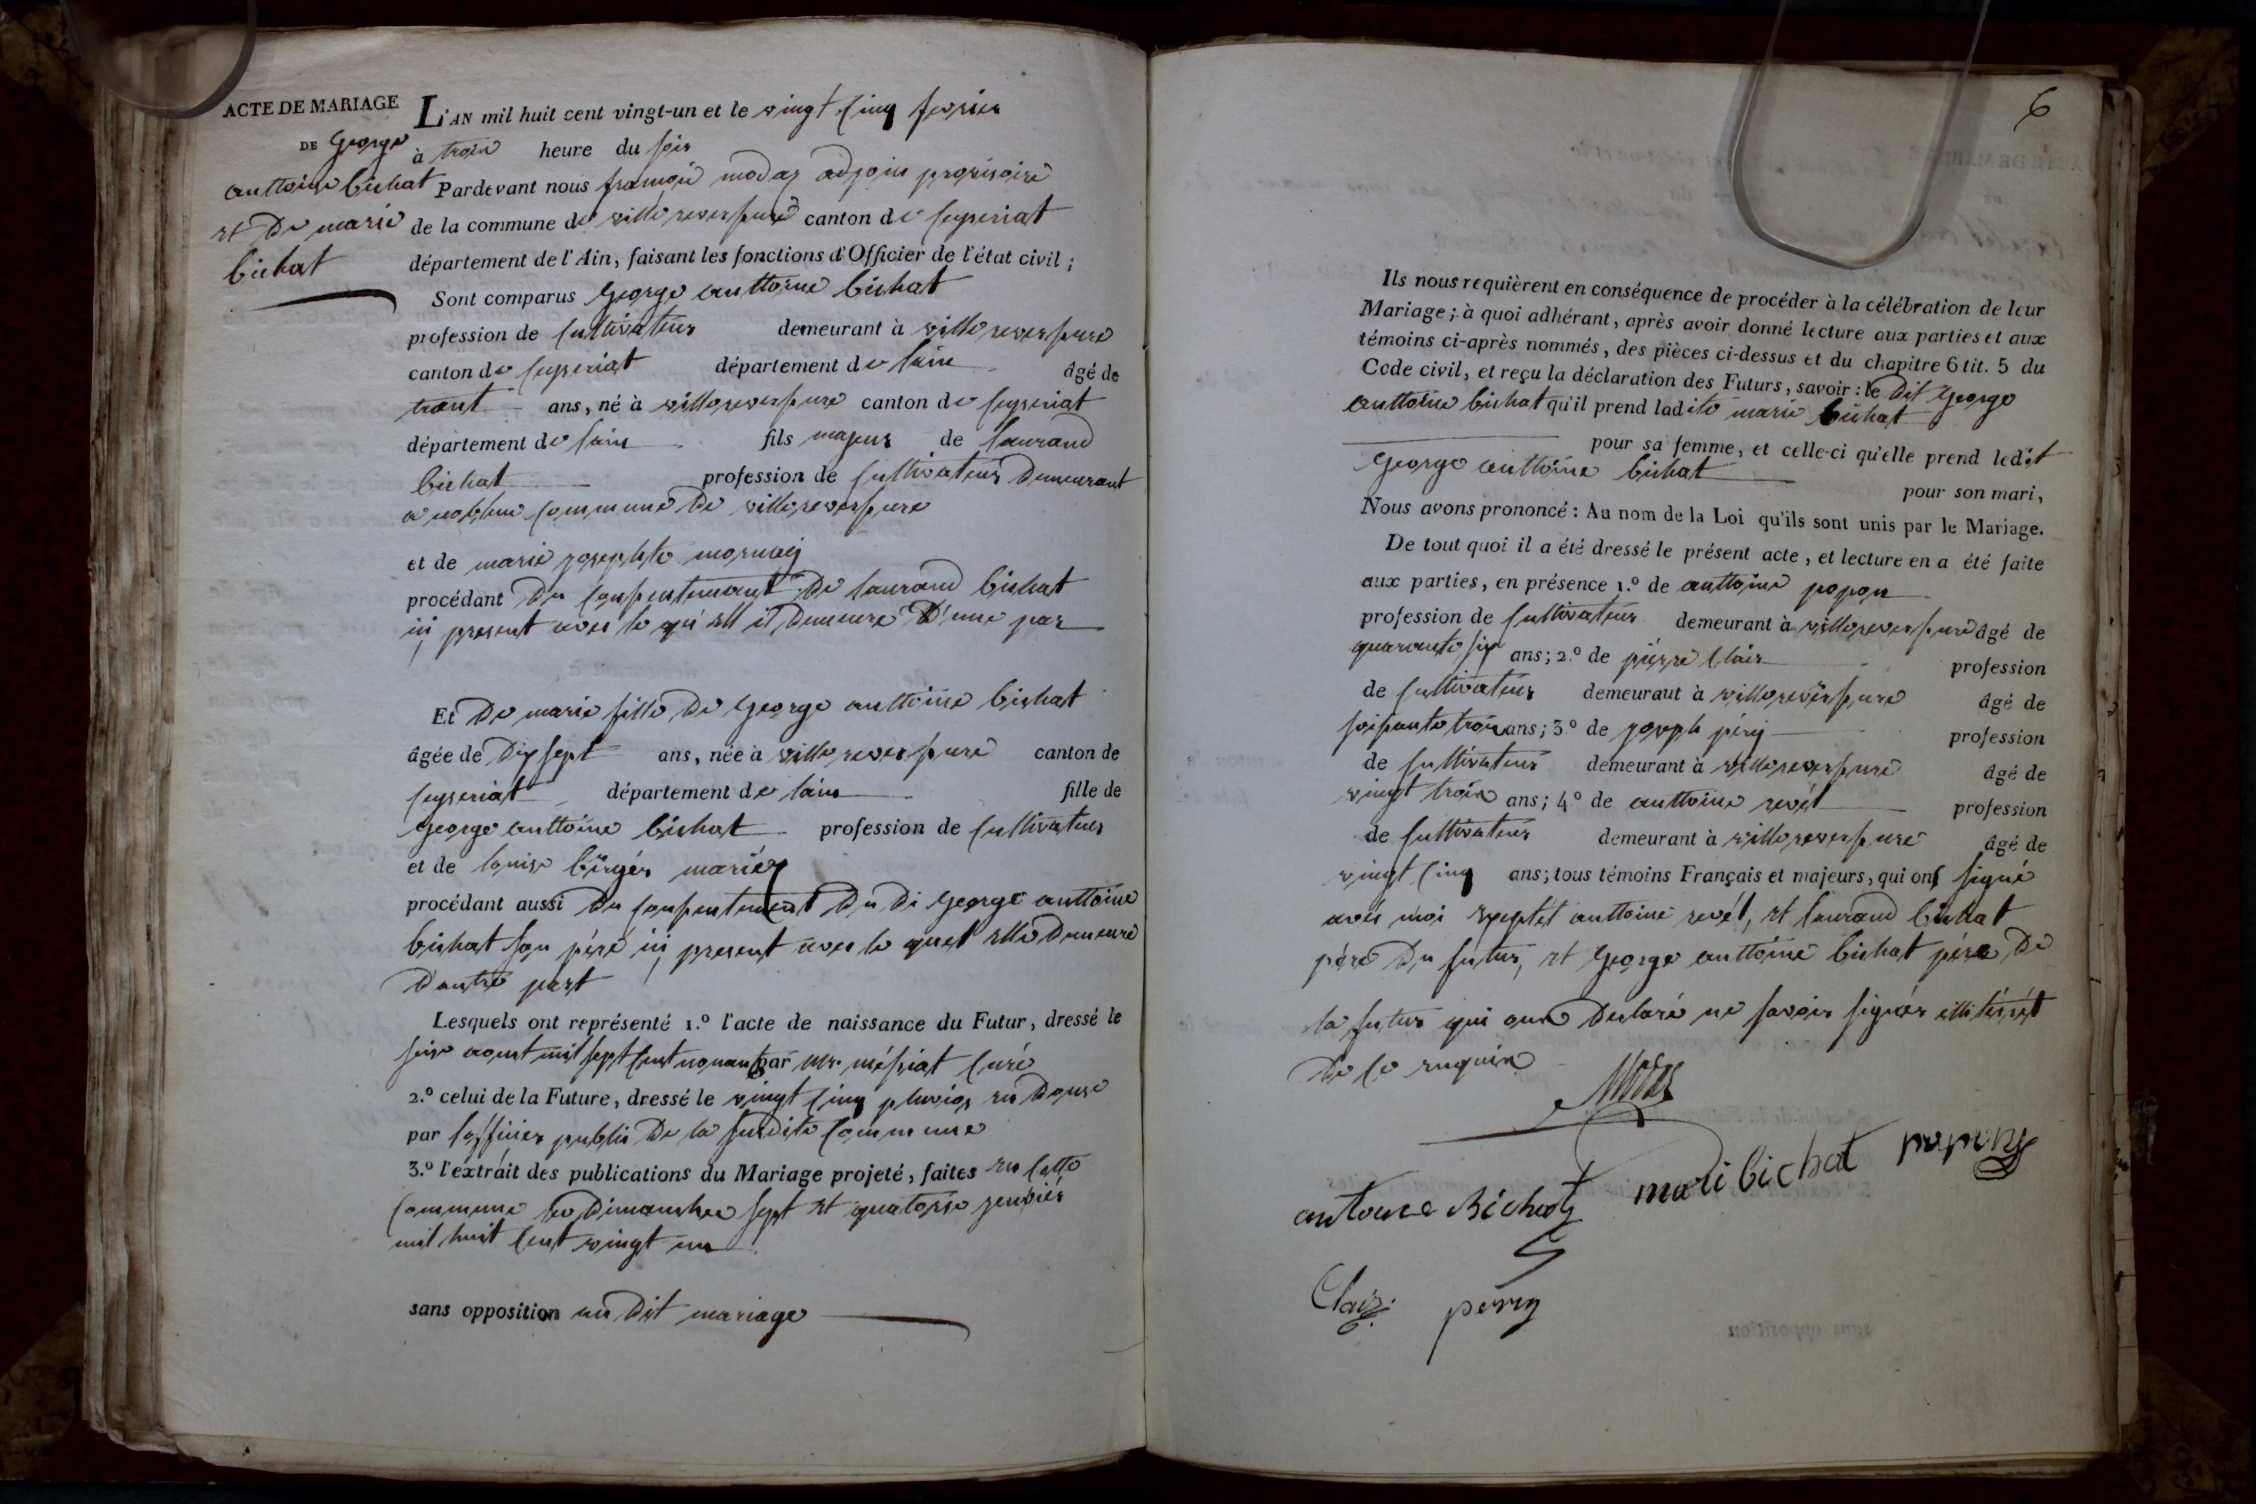 ACTE DE MARIAGE
DE George
anttoine bichat
et De marie
bichat
L'AN mil huit cent vingt-un et le vingt cinq fevrier
à troix heure du soir
Pardevant nous françoi modas adjoin provisoire
de la commune de villereversure canton de ceyseriat
département de l'Ain, faisant les fonctions d'Officier de l'état civil ;
Sont comparus George anttoine bichat
profession de cultivateur demeurant à villereversure
canton de ceyseriat département de lain âgé de
trent ans, né à villereversure canton de ceyseriat
département de lain fils majeur de laurand
bichat profession de cultivateur Demeurant
a noblin commune De villereversure
et de marie josephte mornay
procédant Du consentement De laurand bichat
ici present avec le qu'ell il Demeure D'une par
Et De marie fille De George anttoine bichat
âgée de Dix sept ans, née à villereversure canton de
ceyseriat département de lain fille de
George anttoine bichat profession de cultivateur
et de louise bergér mariéz
procédant aussi Du consentement Du Di George anttoine
bichat son péré ici present avec le quel elle Demeure
D'autre part
Lesquels ont représenté 1.º l'acte de naissance du Futur, dressé le
seise aoust mil sept cent nonant par mr. mésiat curé
2.º celui de la Future, dressé le vingt cinq pluvios an Douse
par l'officier public De la susdite commune
3.º l'extrait des publications du Mariage projeté, faites en cette
commune les Dimanches sept et quatorse jenviér
mil huit cent vingt un
sans opposition au Dit mariage
6
Ils nous requièrent en conséquence de procéder à la célébration de leur
Mariage ; à quoi adhérant, après avoir donné lecture aux parties et aux
témoins ci-après nommés, des pièces ci-dessus et du chapitre 6 tit. 5 du
Code civil, et reçu la déclaration des Futurs, savoir : le Dit George
anttoine bichat qu'il prend ladite marie bichat
pour sa femme, et celle-ci qu'elle prend ledit
George anttoine bichat
pour son mari,
Nous avons prononcé : Au nom de la Loi qu'ils sont unis par le Mariage.
De tout quoi il a été dressé le présent acte, et lecture en a été faite
aux parties, en présence 1.º de anttoine popon
profession de cultivateur demeurant à villereversure âgé de
quarante six ans ; 2.º de piérre Clair profession
de cultivateur demeurant à villereversure âgé de
soixante trois ans ; 3.º de joseph péry profession
de cultivateur demeurant à villereversure âgé de
vingt troix ans ; 4.º de anttoine revél profession
de cultivateur demeurant à villereversure âgé de
vingt cinq ans ; tous témoins Français et majeurs, qui ont signé
avés moi exeptét anttoine revél, et laurand bichat
péré Du futur, et George anttoine bichat péré De
la futur qui ons Declaré ne savoir signér illitérét
De ce enquix
Modas
antoine Bichat mari bichat popon
Clair perry